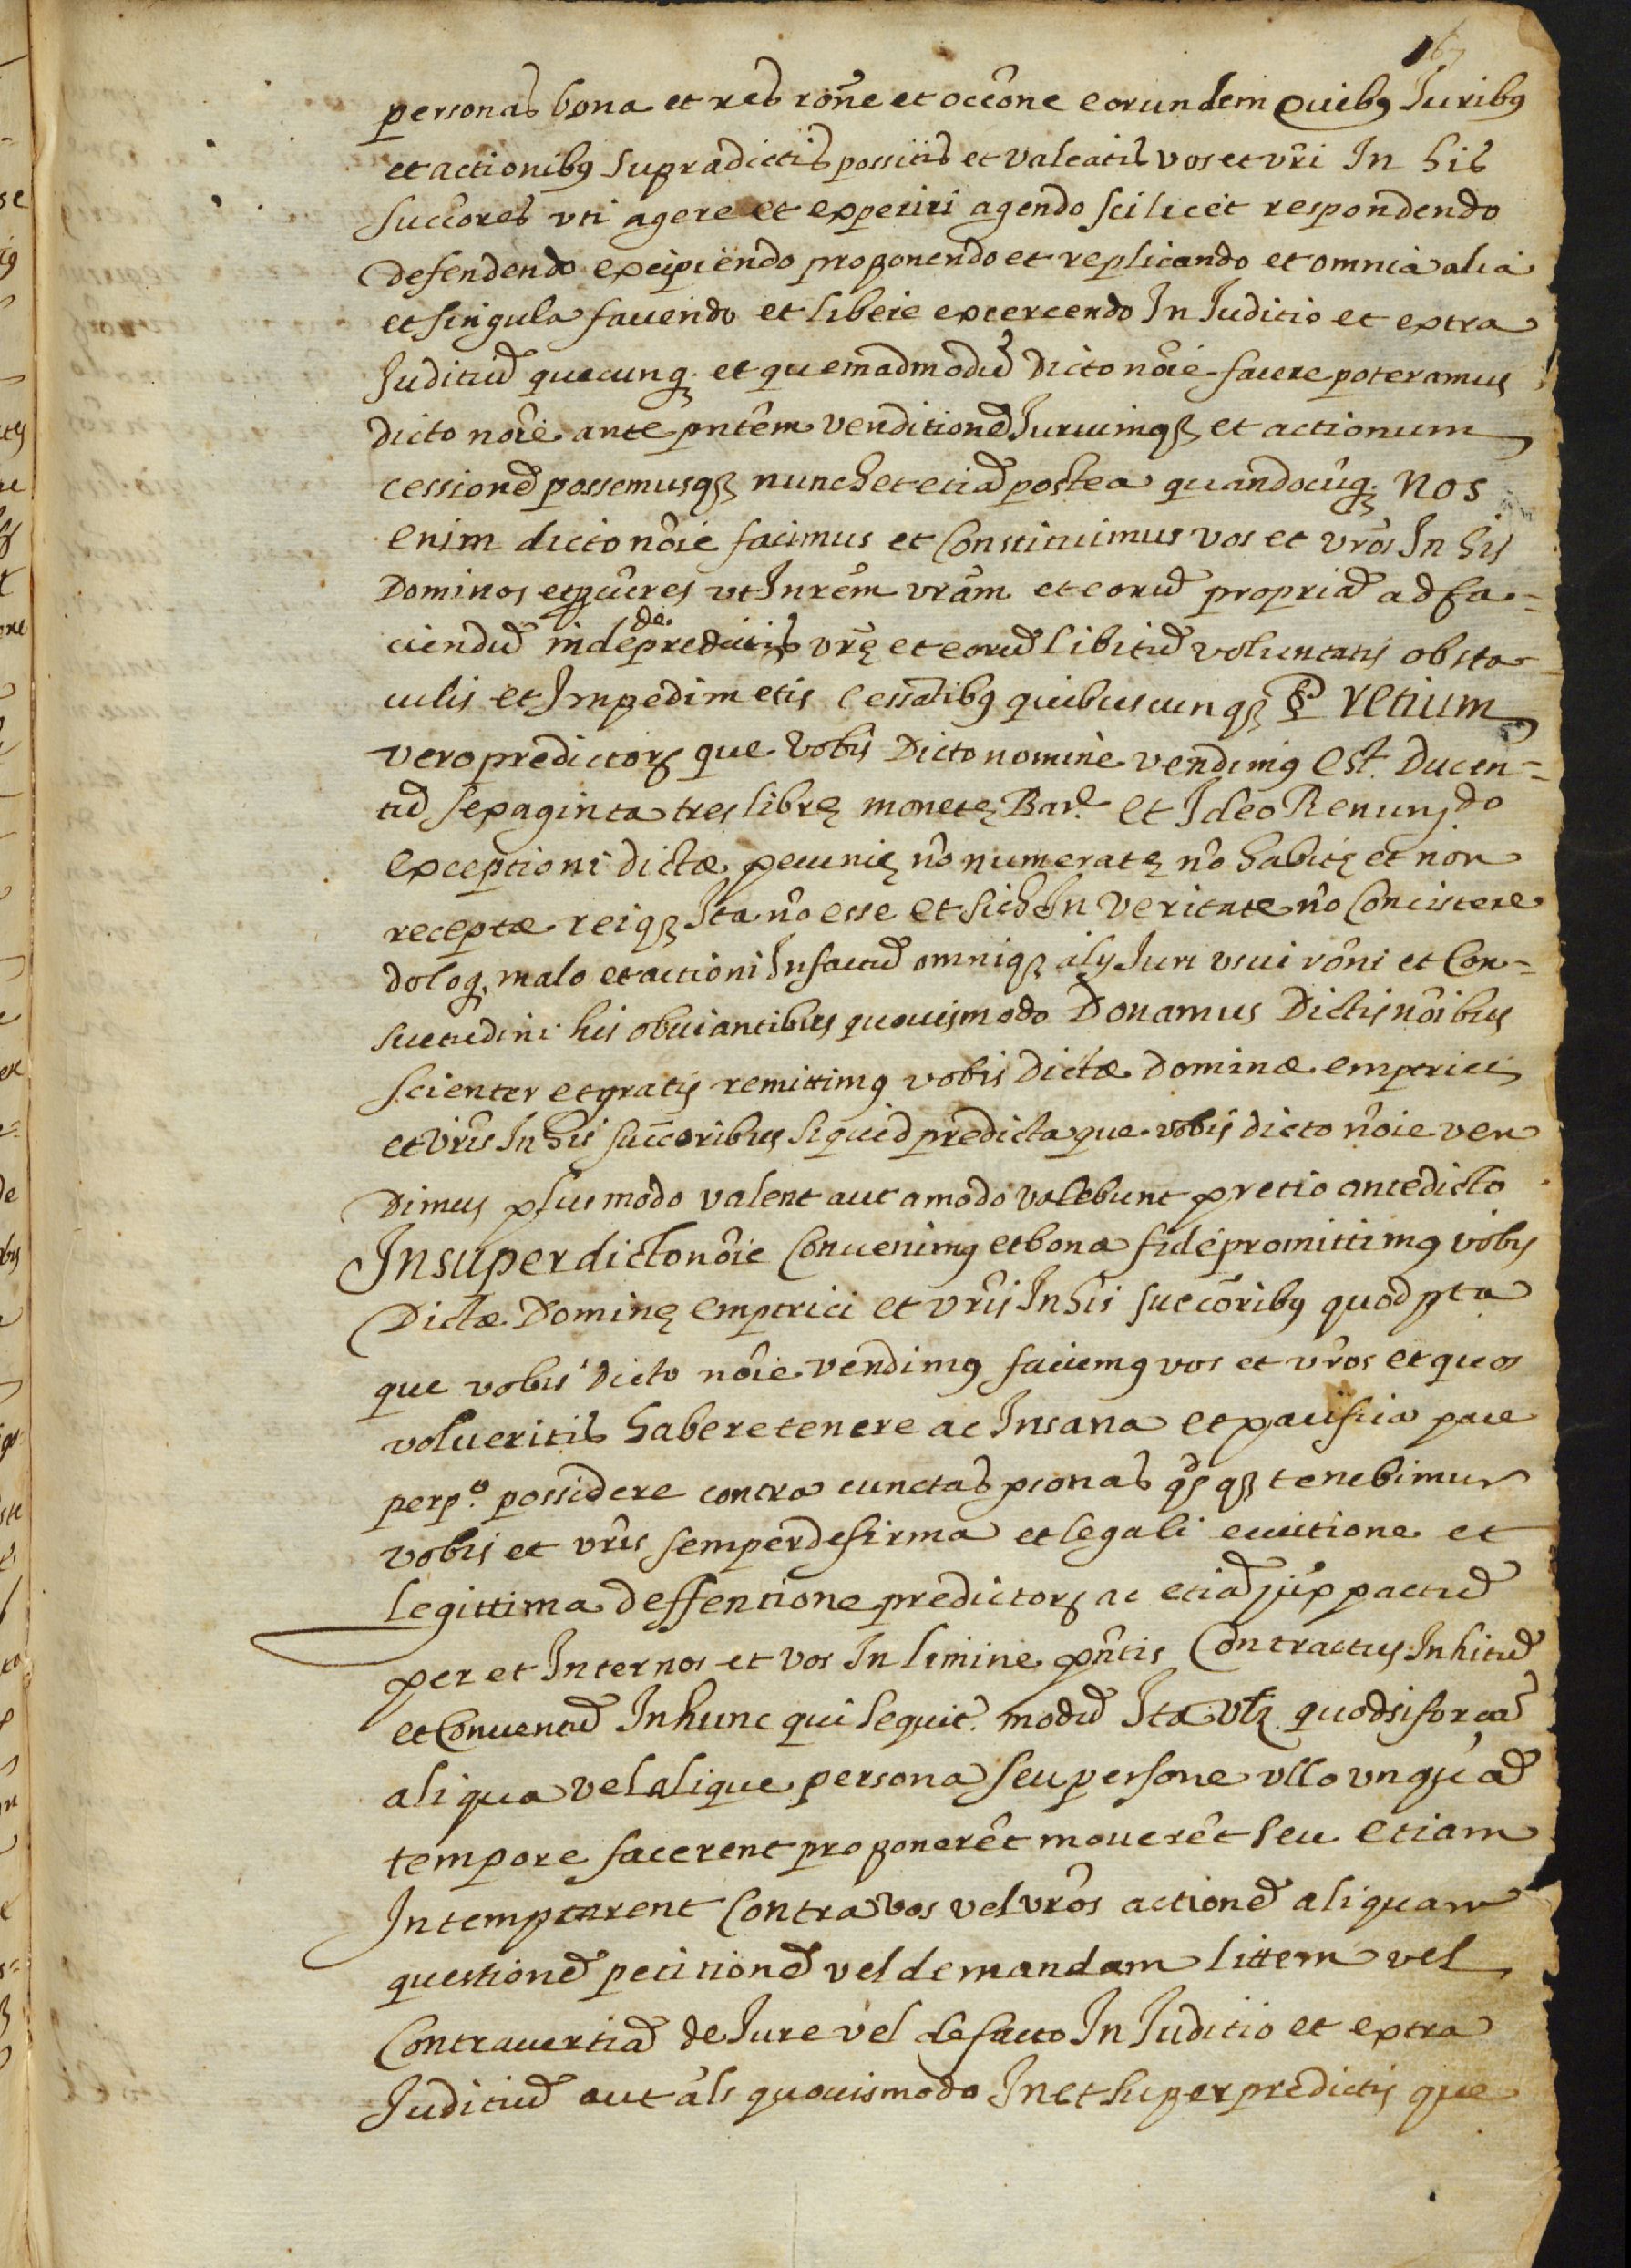 167
personas bona et res rone et occone eorundem Quibus Juribus
et actionibus supradictis possitis et valeatis vos et vri In his
succores vti agere et experiri agendo scilicet respondendo
defendendo excipiendo proponendo et replicando et omnia alia
et singula faciendo et libere excercendo In Juditio et extra
Juditiũ quecunq. et quemadmodũ dicto noie facere poteramus
dicto noie ante pntem venditionẽ Juriumqз et actionum
cessionẽ possemusqз nunc het etiã postea quandocũq. Nos
enim dicto noie facimus et Constituimus vos et vros In his
Dominos et pcures vt In rem vram et eorũ propriã ad fa=
ciendũ inde de predictis vrę et eorũ libitũ voluntatis obsta=
culis et Impedimetis cessatibus quibuscunqз § Pretium
vero predictorз que vobis Dicto nomine vendimus est. Ducen=
tũ sexaginta tres librę monetę Barᵉ. et Ideo Renunᵈᵒ
exceptioni dictæ pecunię nõ numeratę nõ habitę et non
receptæ reiqз Ita nõ esse et sic In veritate nõ Concistere
doloq. malo et actioni In factũ omniqз alij Juri vsui roni et Con=
suetudini his obuiantibus quouismodo Donamus Dictis noibus
scienter et gratis remittimus vobis dictæ dominæ emptrici
et vris In his succoribus siquid predicta que vobis dicto noie ven
dimus plus modo valent aut amodo valebunt pretio antedicto
Insuper dicto noie Conuenimus et bona fide promittimus vobis
Dictæ Dominę emptrici et vris In his succoribus quod pta
que vobis dicto noie vendimus faciemus vos et vros et quos
volueritis habere tenere ac In sana et pacifica pace
perpᵒ. possidere contra cunctas psonas qз tenebimur
vobis et vris semper de firma et legali euictione et
legittima deffentione predictorз ac etiã pactũ
per et Inter nos et vos In limine pntis Contractus Inhitũ
et Conuentũ In hunc qui sequit. modũ Ita vtz. quod si força
aliqua vel alique persona seu persone vllo vnquã
tempore facerent proponeret moueret seu etiam
Intemptarent Contra vos vel vros actionẽ aliquam
questionẽ petitionẽ vel demandam littem vel
Contrauertiã de Jure vel de facto In Juditio et extra
Juditiũ aut als quouismodo In et super predictis que